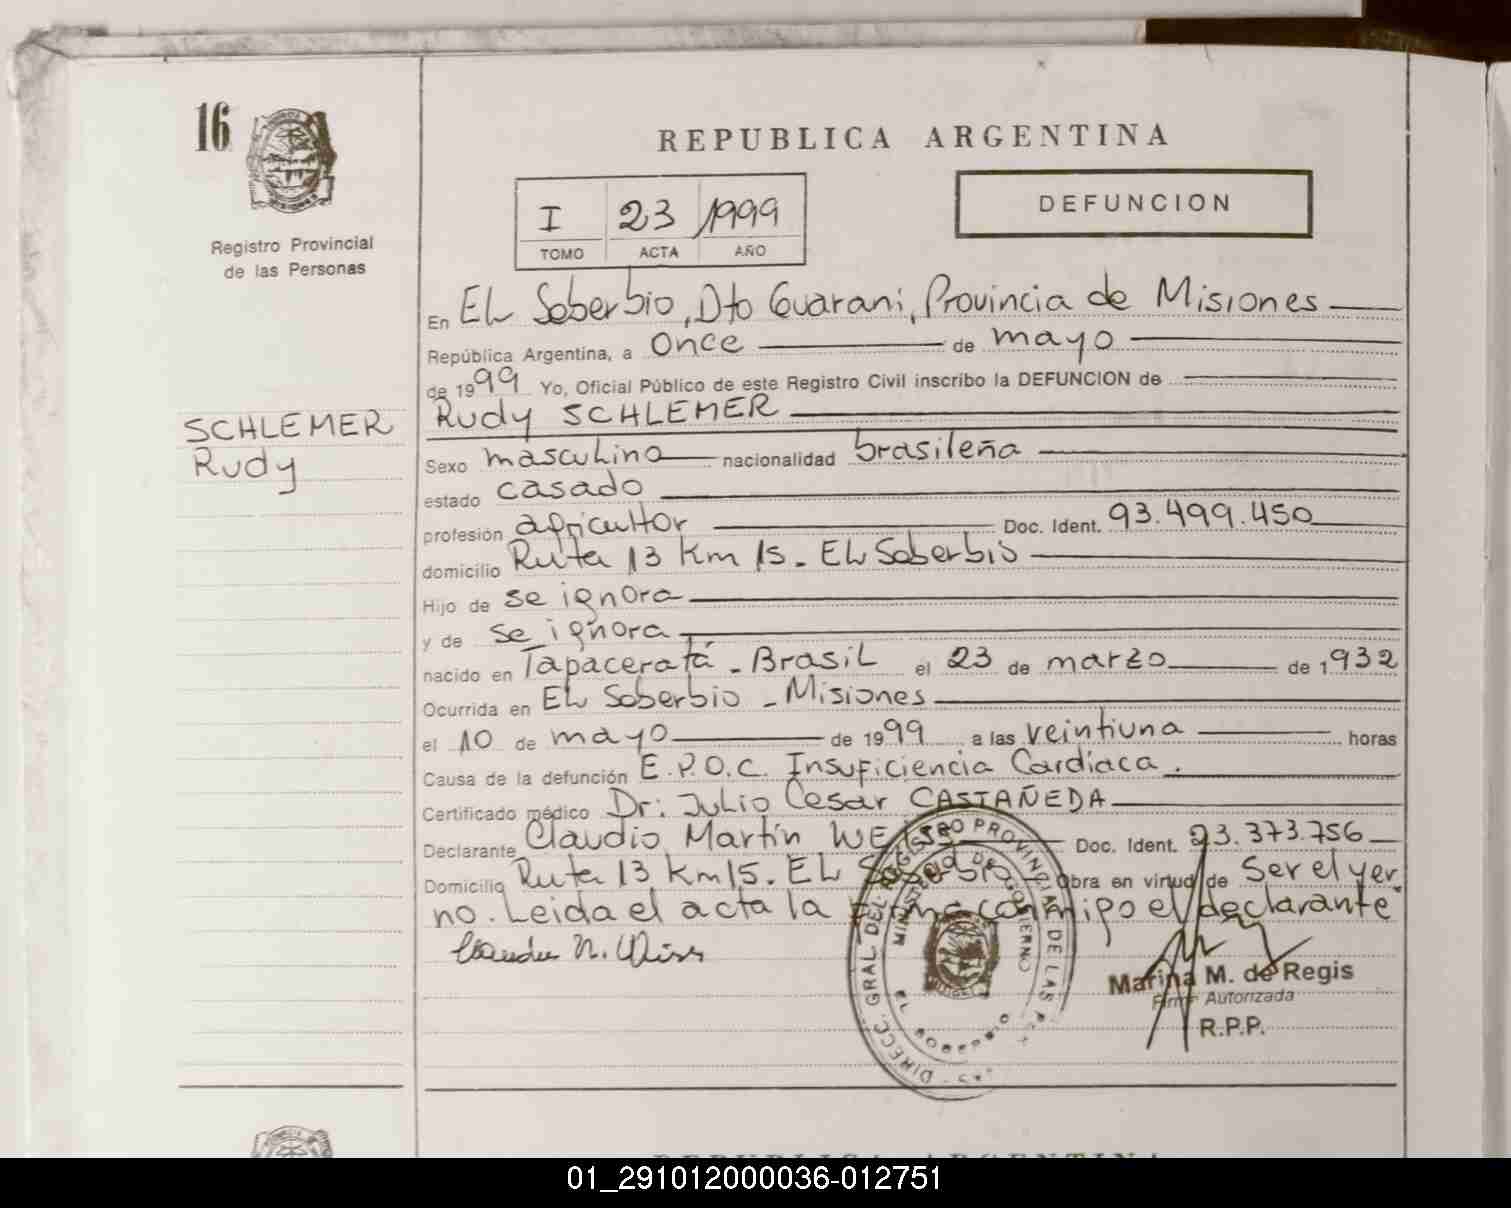 16
Registro Provincial
de las Personas
SCHLEMER
Rudy
REPUBLICA ARGENTINA
I 23 1999
TOMO ACTA AÑO
DEFUNCION
En El Soberbio, Dto Guarani, Provincia de Misiones
República Argentina, a once de mayo
de 1999 Yo, Oficial Público de este Registro Civil inscribo la DEFUNCION de
Rudy SCHLEMER
Sexo masculino nacionalidad brasileña
estado casado
profesión agricultor Doc. Ident. 93.499.450
domicilio Ruta 13 Km 15. El Soberbio
Hijo de se ignora
y de se ignora
nacido en Tapaceratá - Brasil el 23 de marzo de 1932
Ocurrida en El Soberbio - Misiones
el 10 de mayo de 1999 a las veintiuna horas
Causa de la defunción E.P.O.C. Insuficiencia Cardíaca.
Certificado médico Dr: Julio Cesar CASTAÑEDA
Declarante Claudio Martín WEISS Doc. Ident. 23.373.756
Domicilio Ruta 13 Km 15. El Soberbio Obra en virtud de Ser el yer
no. Leida el acta la firma conmigo el declarante
Claudio M. Weiss
DIRECC. GRAL DEL REGISTRO PROVINCIAL DE LAS PER
MINISTERIO DE GOBIERNO
EL SOBERBIO
Marina M. de Regis
Firma Autorizada
R.P.P.
REPUBLICA ARGENTINA
01_291012000036-012751